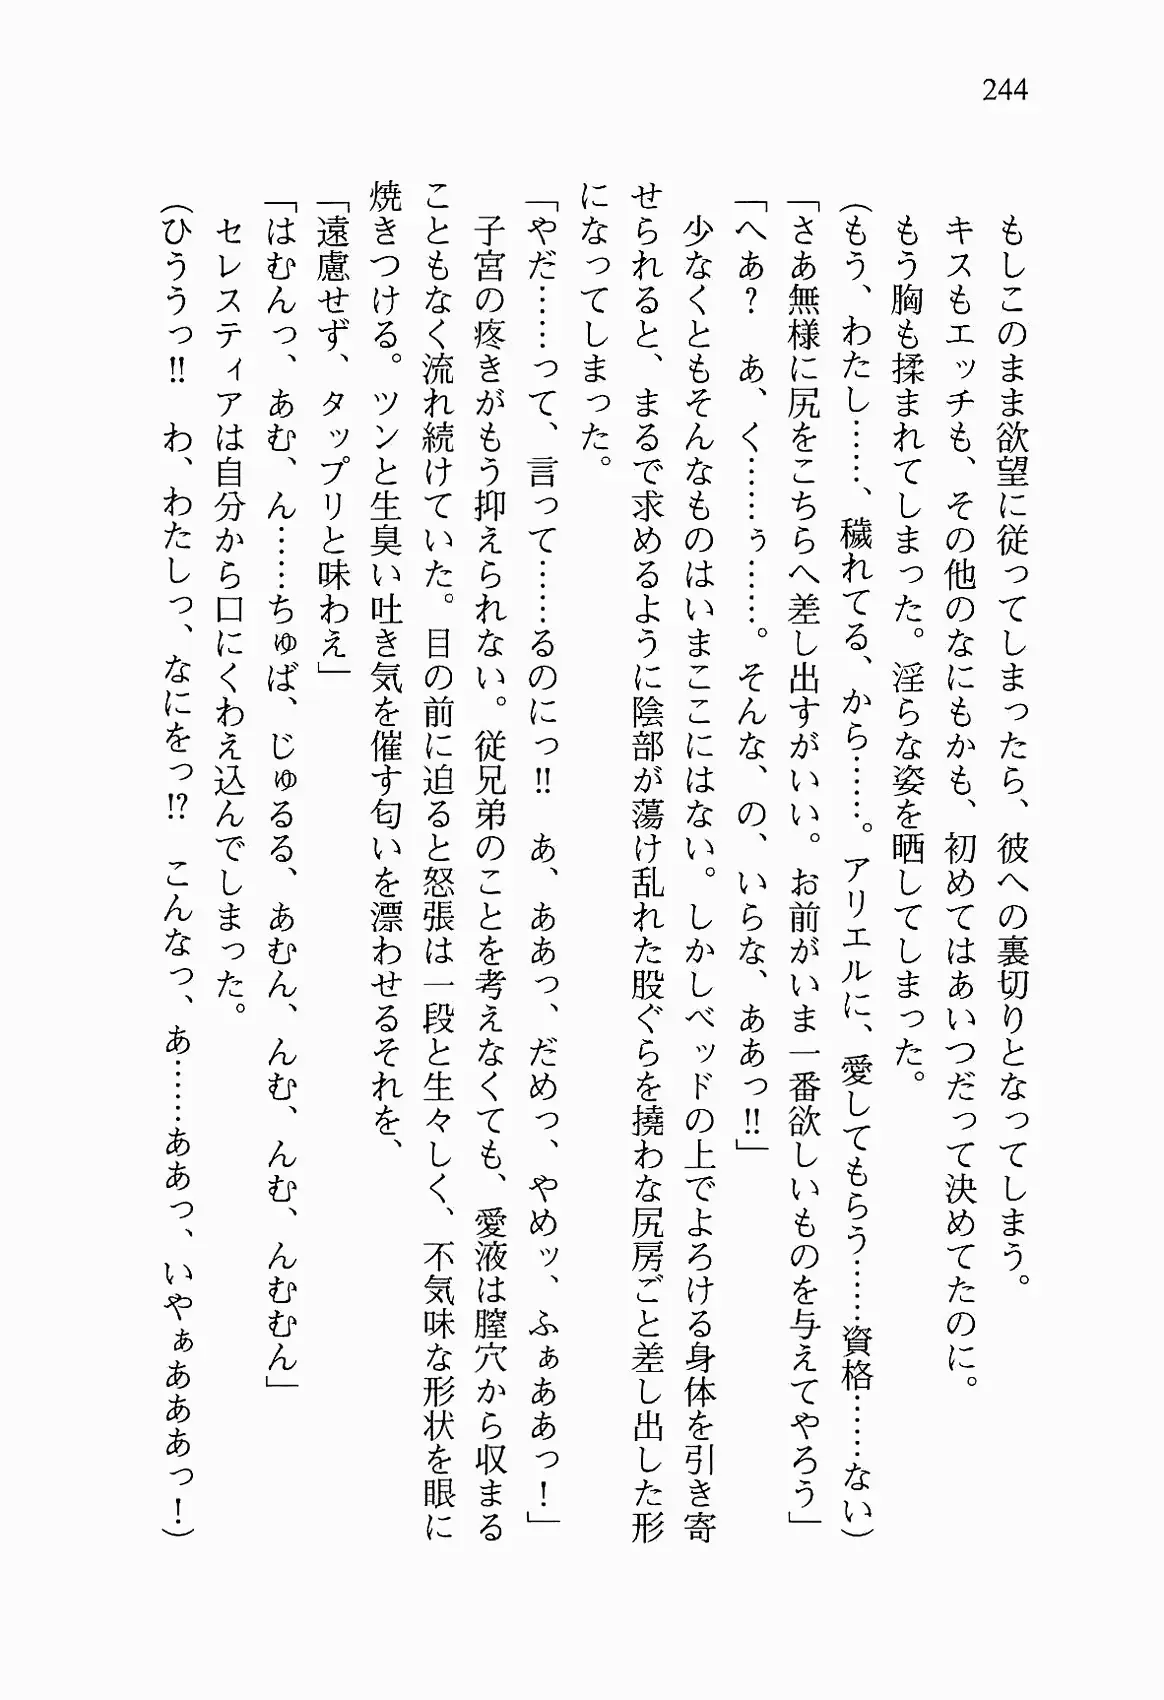 244
もしこのまま欲望に従ってしまったら、彼への裏切りとなってしまう。
キスもエッチも、その他のなにもかも、初めてはあいつだって決めてたのに。
もう胸も揉まれてしまった。淫らな姿を晒してしまった。
(もう、わたし……、穢れてる、から……。アリエルに、愛してもらう……資格……ない)
「さあ無様に尻をこちらへ差し出すがいい。お前がいま一番欲しいものを与えてやろう」
「へあ?　あ、く……ぅ……。そんな、の、いらな、ああっ!!」
少なくともそんなものはいまここにはない。しかしベッドの上でよろける身体を引き寄
せられると、まるで求めるように陰部が蕩け乱れた股ぐらを撓わな尻房ごと差し出した形
になってしまった。
「やだ……って、言って……るのにっ!!　あ、ああっ、だめっ、やめッ、ふぁああっ!」
子宮の疼きがもう抑えられない。従兄弟のことを考えなくても、愛液は膣穴から収まる
こともなく流れ続けていた。目の前に迫ると怒張は一段と生々しく、不気味な形状を眼に
焼きつける。ツンと生臭い吐き気を催す匂いを漂わせるそれを、
「遠慮せず、タップリと味わえ」
「はむんっ、あむ、ん……ちゅば、じゅるる、あむん、んむ、んむ、んむむん」
セレスティアは自分から口にくわえ込んでしまった。
(ひううっ!!　わ、わたしっ、なにをっ!?　こんなっ、あ……ああっ、いやぁあああっ!)